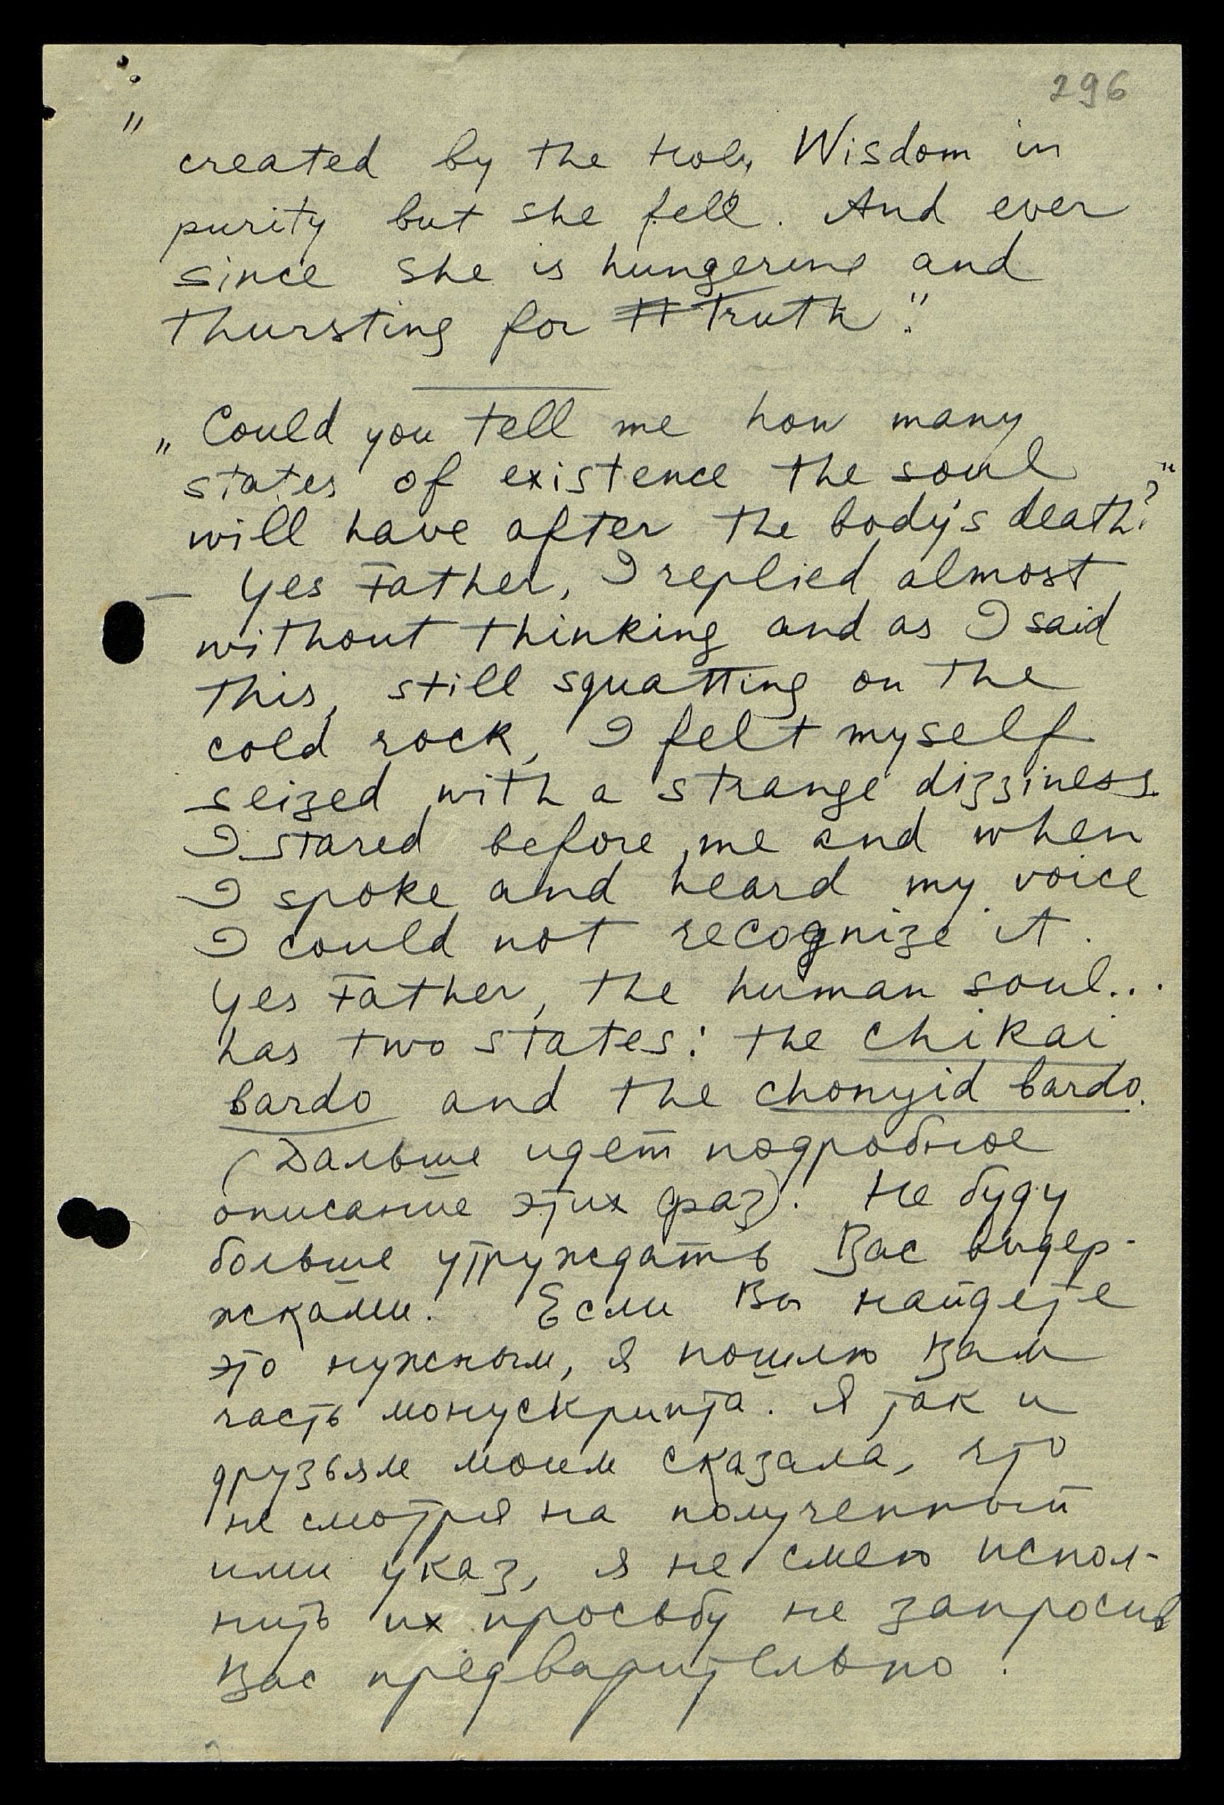 296
"
created by the Holy Wisdom in
purity but she fell. And ever
since she is hungering and
thursting for truth".
„Could you tell me how many
states of existence the soul
will have after the body's death?"
— Yes Father, I replied almost
without thinking and as I said
this, still squatting on the
cold rock, I felt myself
seized with a strange dizziness.
I stared before me and when
I spoke and heard my voice
I could not recognize it.
Yes Father, the human soul...
has two states: the chikai
bardo and the chonyid bardo.
(Дальше идет подробное
описание этих фаз). Не буду
больше утруждать Вас видер-
жками. Если Вы найдете
это нужным, я пошлю Вам
часть монускрипта. Я так и
друзьям моим сказала, что
не смотря на полученный
ими указ, я не смею испол-
нить их просьбу не запросив
Вас предварительно.